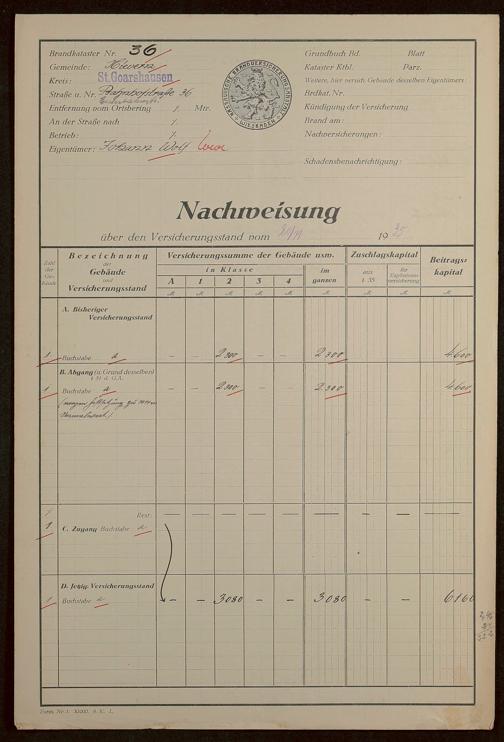 Brandkataster Nr. 36
Gemeinde:
Kreis: St. Goarshausen
Straße u. Nr. Bahnhofstraße 36
Entfernung vom Ortsbering Mtr.
An der Straße nach
Betrieb:
Eigentümer: Johann Wolf
NASSAUISCHE BRANDVERSICHERUNGSANSTALT WIESBADEN
Grundbuch Bd. Blatt
Kataster Ktbl. Parz.
Weitere, hier versich. Gebäude desselben Eigentümers:
Brdkat. Nr.
Kündigung der Versicherung
Brand am:
Nachversicherungen:
Schadensbenachrichtigung:
Nachweisung
über den Versicherungsstand vom 1935
Zahl der Gebäude
Bezeichnung der Gebäude und Versicherungsstand
Versicherungssumme der Gebäude usw.
in Klasse
A 1 2 3 4
im ganzen
Zuschlagskapital
aus § 35
für Ergänzungsversicherung
Beitragskapital
A. Bisheriger
Versicherungsstand
1 Buchstabe a – – 2300 – – 2300 – – 4600
B. Abgang (a. Grund desselben)
1 Buchstabe a – – 2300 – – 2300 – – 4600
Rest:
1 C. Zugang Buchstabe a
D. Jetzig. Versicherungsstand
1 Buchstabe a – – 3080 – – 3080 – – 6160